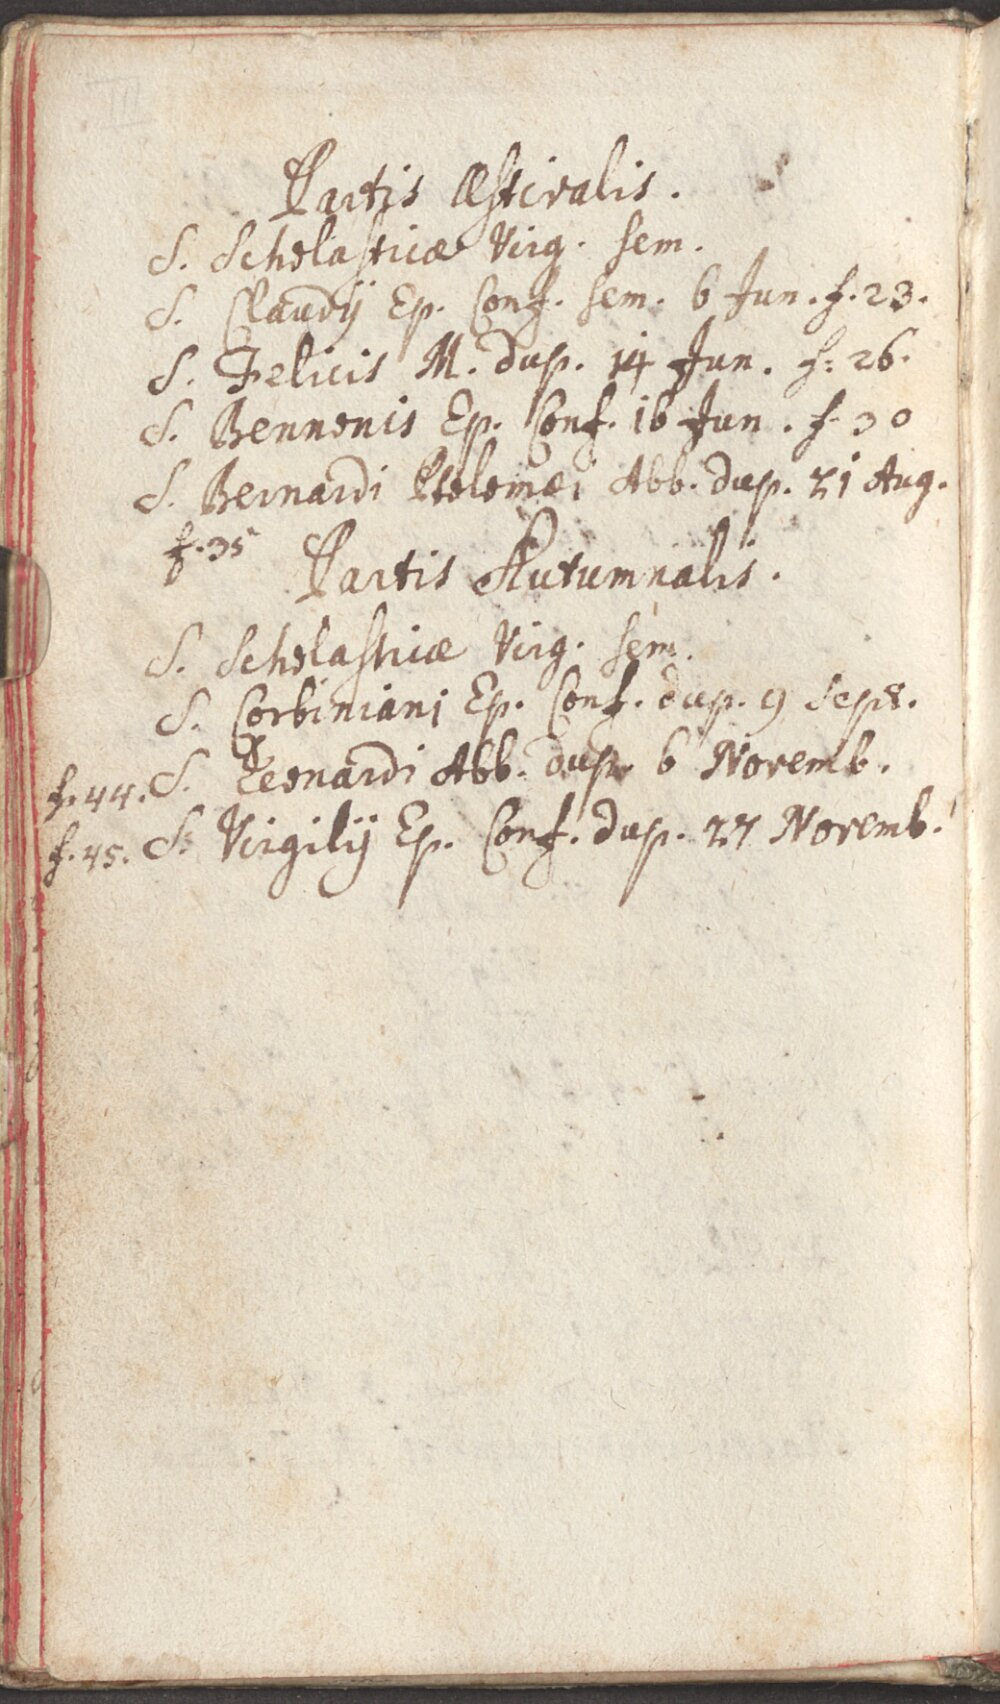 Partis Æstivalis.
S. Scholasticæ Virg. sem.
S. Claudij Ep. Conf. sem. 6 Jun. f. 23.
S. Felicis M. dup. 14 Jun. f: 26.
S. Bennonis Ep. Conf. 16 Jun. f. 30
S. Bernardi Ptolomæi Abb. dup. 21 Aug.
f. 35
Partis Autumnalis.
S. Scholasticæ Virg. sem.
S. Corbiniani Ep. Conf. dup. 9 Sept.
f. 44. S. Leonardi Abb. dup. 6 Novemb.
f. 45. S. Virgilij Ep. Conf. dup. 27 Novemb.